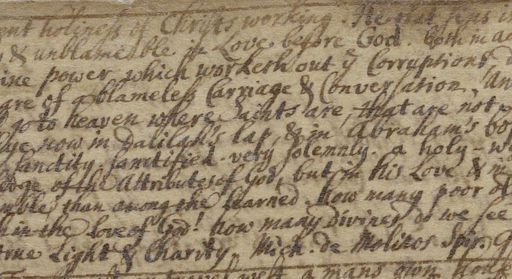 ent holiness of Chrysts working. He that sins is
& unblameable in Love before God. both in
ine power which worketh out ye Corruptions
are of a blameless Carriage & Conversation, An
go to heaven where Saints are that are not
lye now in Dalilah's lap & in Abraham's bos
sanctity, sanctified very solemnly, a holy-
edge of the Attributes of God, but in his Love & in
than among the learned. How many poor
in the love of God! how many divines do we see
true Light & Charity. Mich. de Molitos Spir. G
travel a man now